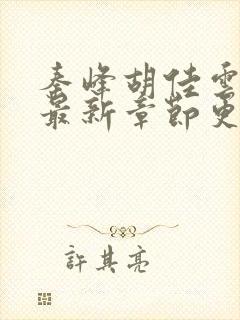 秦峰胡佳雲
最新章節更
許其亮